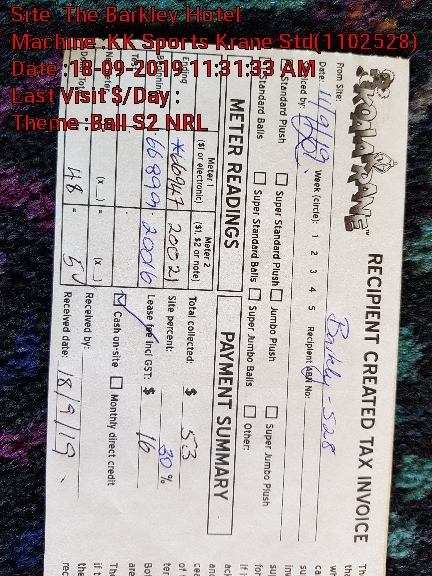 Site :The Barkley Hotel
Machine :KK Sports Krane Std(1102528)
Date :18-09-2019 11:31:33 AM
Last Visit $/Day :
Theme :Ball S2 NRL
KOALA KRANE™
RECIPIENT CREATED TAX INVOICE
From Site: Barkley - S28
Date: 11/9/19 Week (circle): 1 2 3 4 5 Recipient ABN No:
Standard Plush Super Standard Plush Jumbo Plush Super Jumbo Plush
Standard Balls Super Standard Balls Super Jumbo Balls Other:
METER READINGS
PAYMENT SUMMARY
Meter 1 ($1 or electronic) Meter 2 ($1, $2 or note)
Total collected: $ 53
Ending 66947 20021
Site percent: 30 %
Beginning 66899 20016
Lease fee incl GST: $ 16
Cash on-site Monthly direct credit
(x ) = (x )
Received by:
48 = 5
Received date: 18/9/19